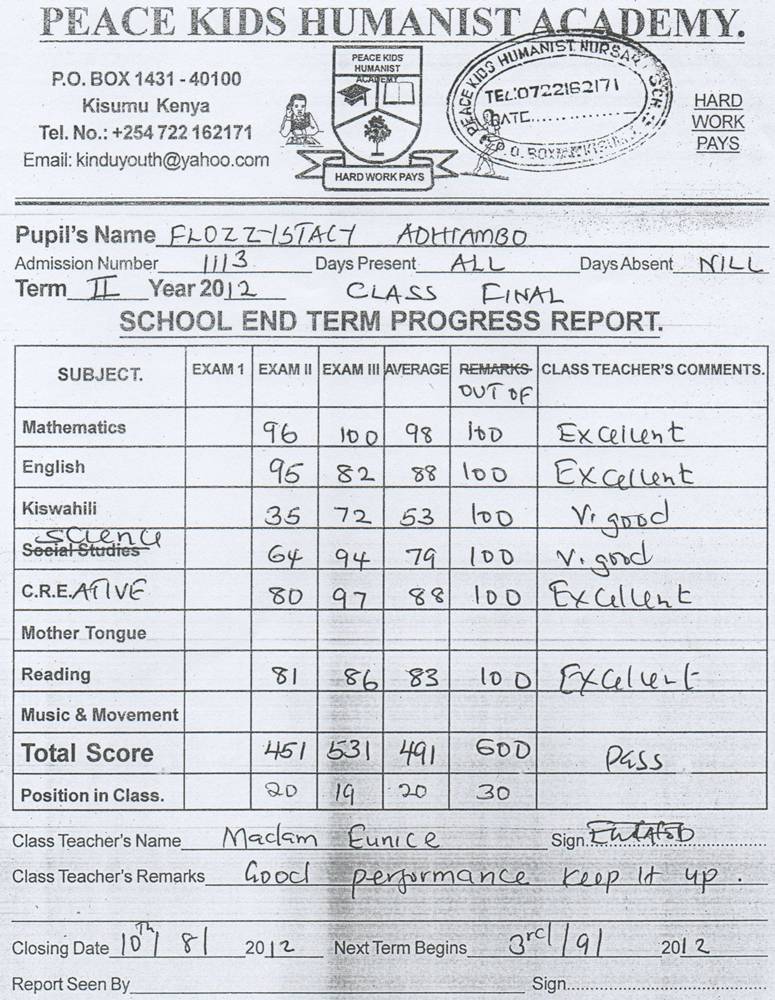 PEACE KIDS HUMANIST ACADEMY.
P.O. BOX 1431 - 40100
Kisumu Kenya
Tel. No.: +254 722 162171
Email: kinduyouth@yahoo.com
PEACE KIDS
HUMANIST
ACADEMY
HARD WORK PAYS
PEACE KIDS HUMANIST NURSARY SCH
TEL:0722162171
DATE..............
P.O. BOX
HARD
WORK
PAYS
Pupil's Name FLOZZ-ISTACY ADHIAMBO
Admission Number 1113 Days Present ALL Days Absent NILL
Term II Year 2012 CLASS FINAL
SCHOOL END TERM PROGRESS REPORT.
SUBJECT. EXAM 1 EXAM II EXAM III AVERAGE REMARKS CLASS TEACHER'S COMMENTS.
OUT OF
Mathematics 96 100 98 100 Excellent
English 95 82 88 100 Excellent
Kiswahili 35 72 53 100 V. good
Science
Social Studies 64 94 79 100 V. good
C.R.E.ATIVE 80 97 88 100 Excellent
Mother Tongue
Reading 81 86 83 100 Excellent
Music & Movement
Total Score 451 531 491 600 Pass
Position in Class. 20 19 20 30
Class Teacher's Name Madam Eunice Sign.
Class Teacher's Remarks Good performance keep it up.
Closing Date 10th/8/ 2012 Next Term Begins 3rd/9/ 2012
Report Seen By Sign.